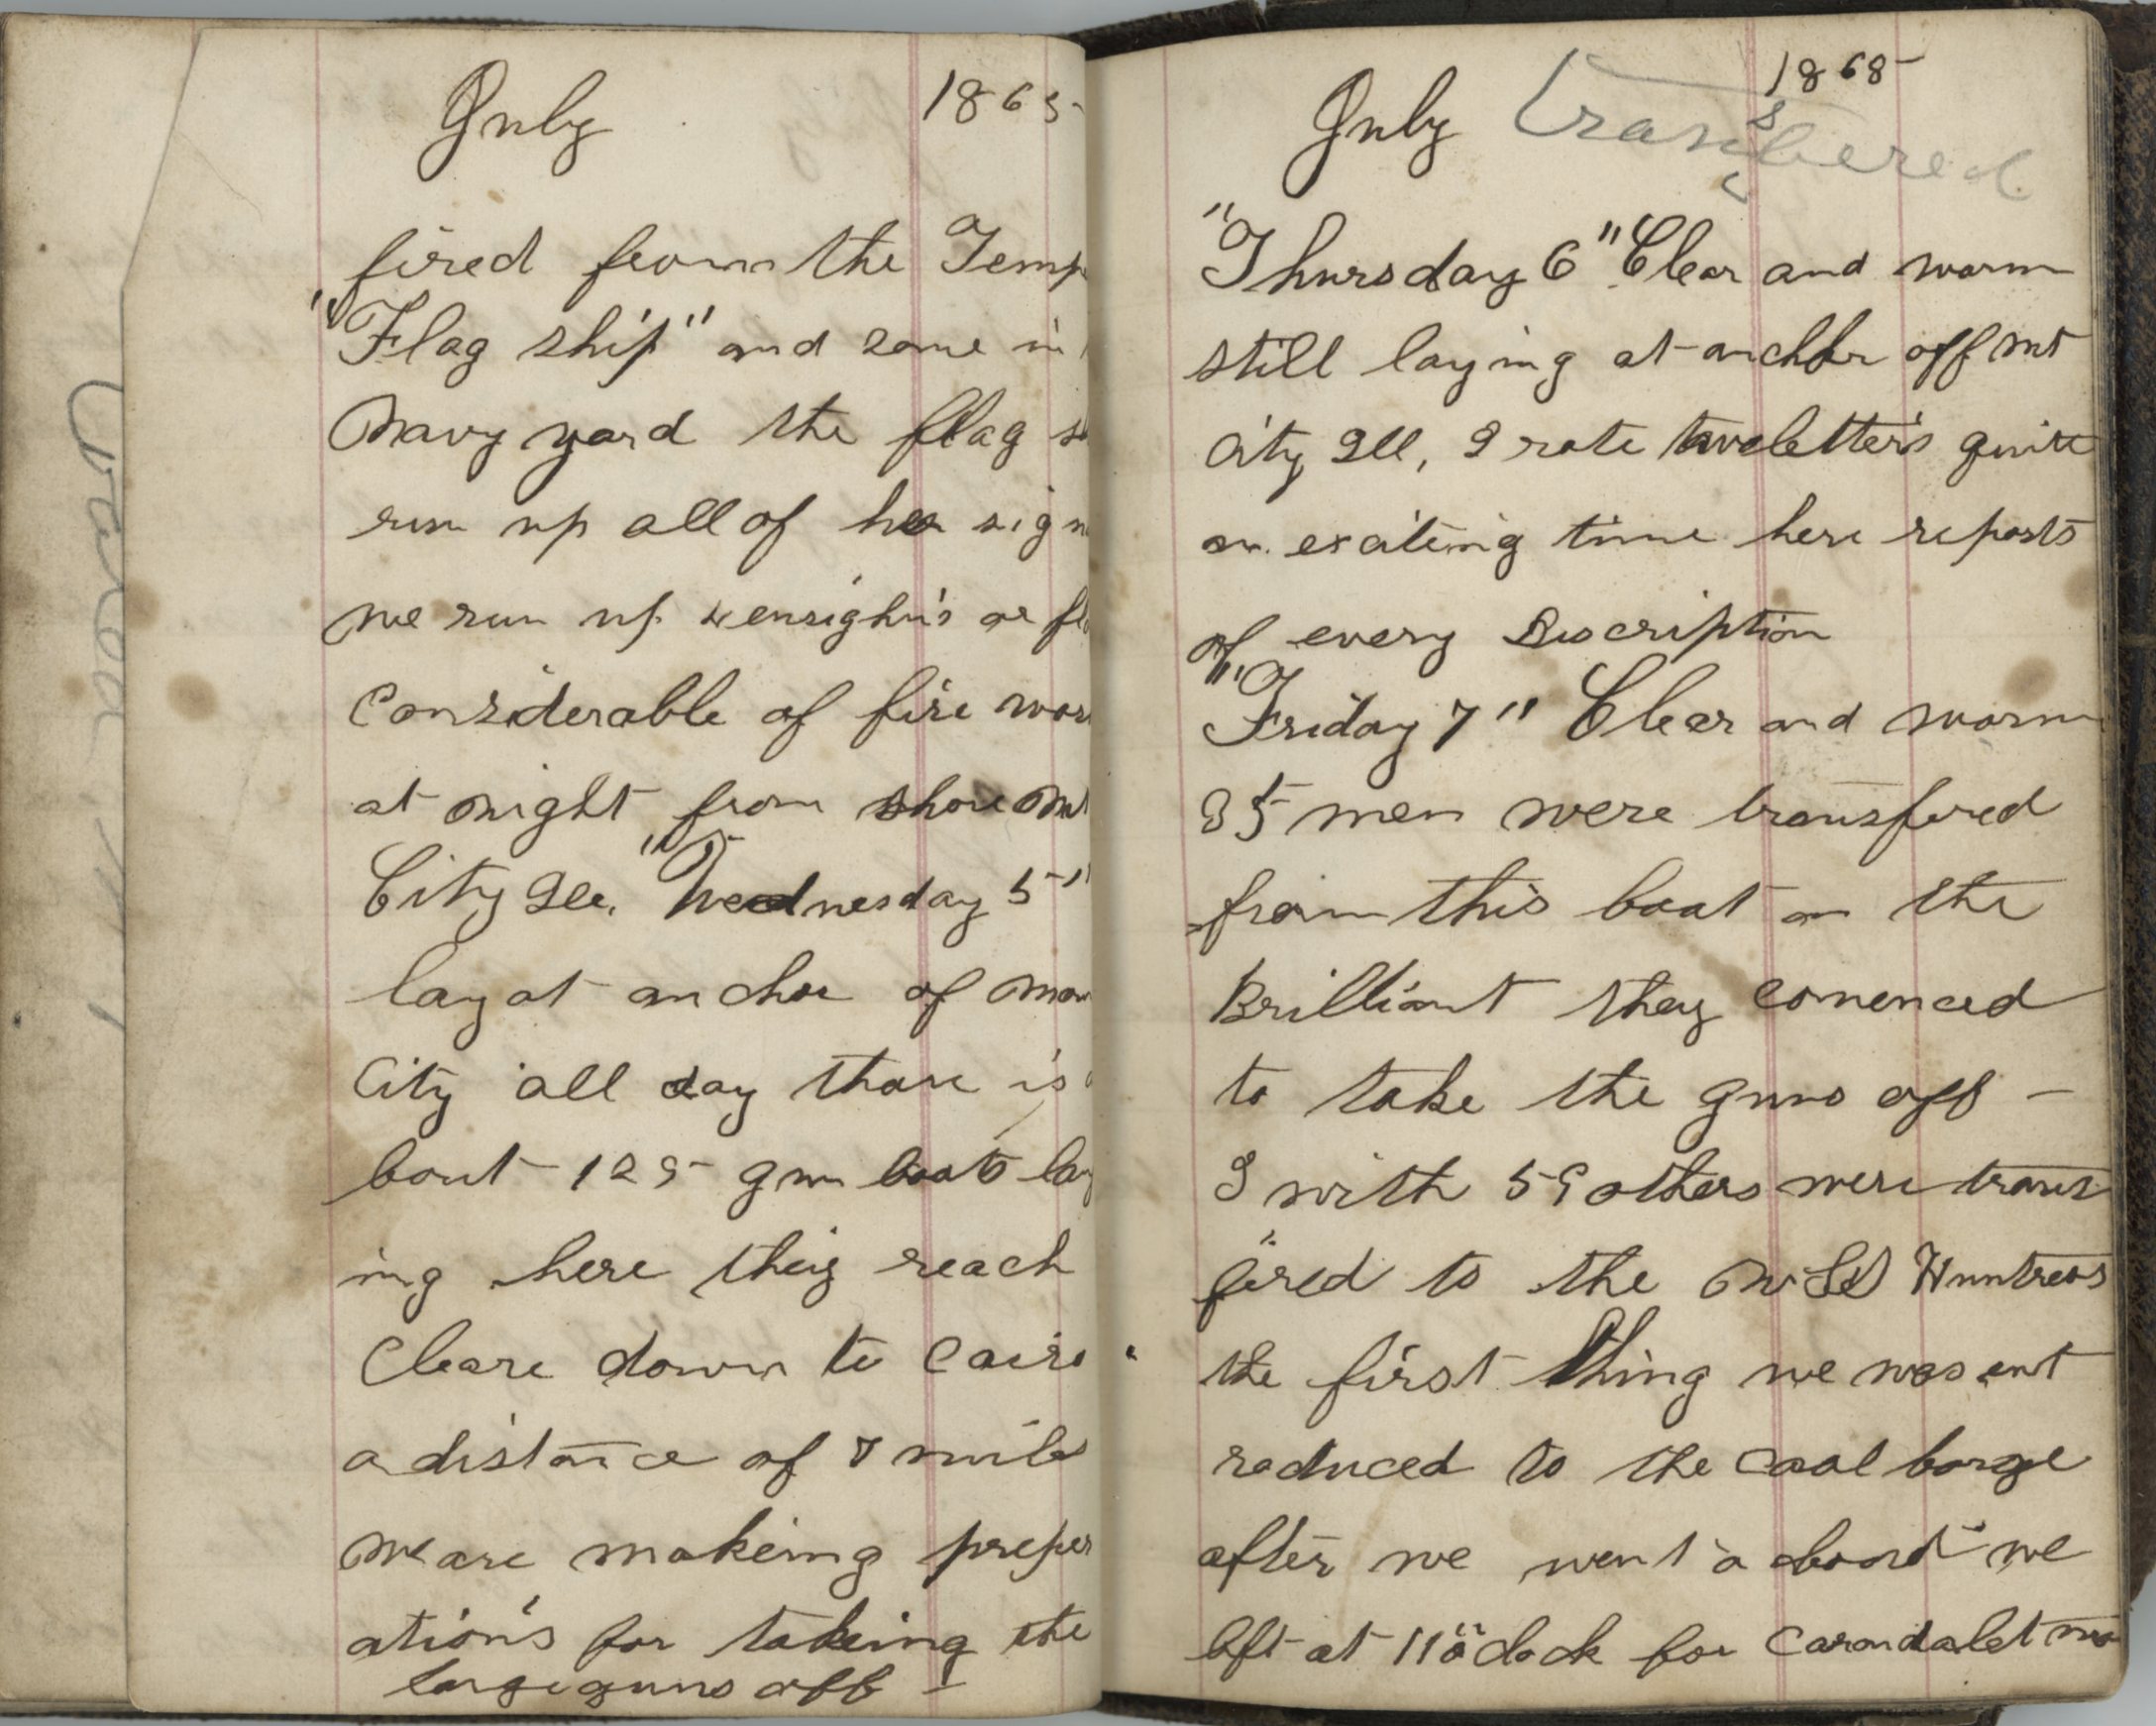 July 1865
fired from the Temp
"Flag ship" and some in
Navy yard the flag s
run up all of her sign
we run up ensighn's or fl
Considerable of fire wor
at night from shore Mt
City Ill, "Wednesday 5"
lay at anchor of Mou
City all day thare is a
bout 125 gun boats lay
ing here they reach
Cleare down to Cairo
a distance of 7 miles
we are makeing preper
ation's for takeing the
large guns off -
July Transfered 1865
"Thursday 6" Clear and warm
still laying at anchor off Mt
City Ill, I rote two letters quite
an exciteing time here reports
of every Discription
"Friday 7" Clear and warm
35 men were transfered
from this boat on the
Brilliant they comenced
to take the guns off -
I with 59 others were trans
fered to the Huntress
the first thing we was ent
roduced to the coal barge
after we went a board we
left at 11 o'clock for Carondalet Mo